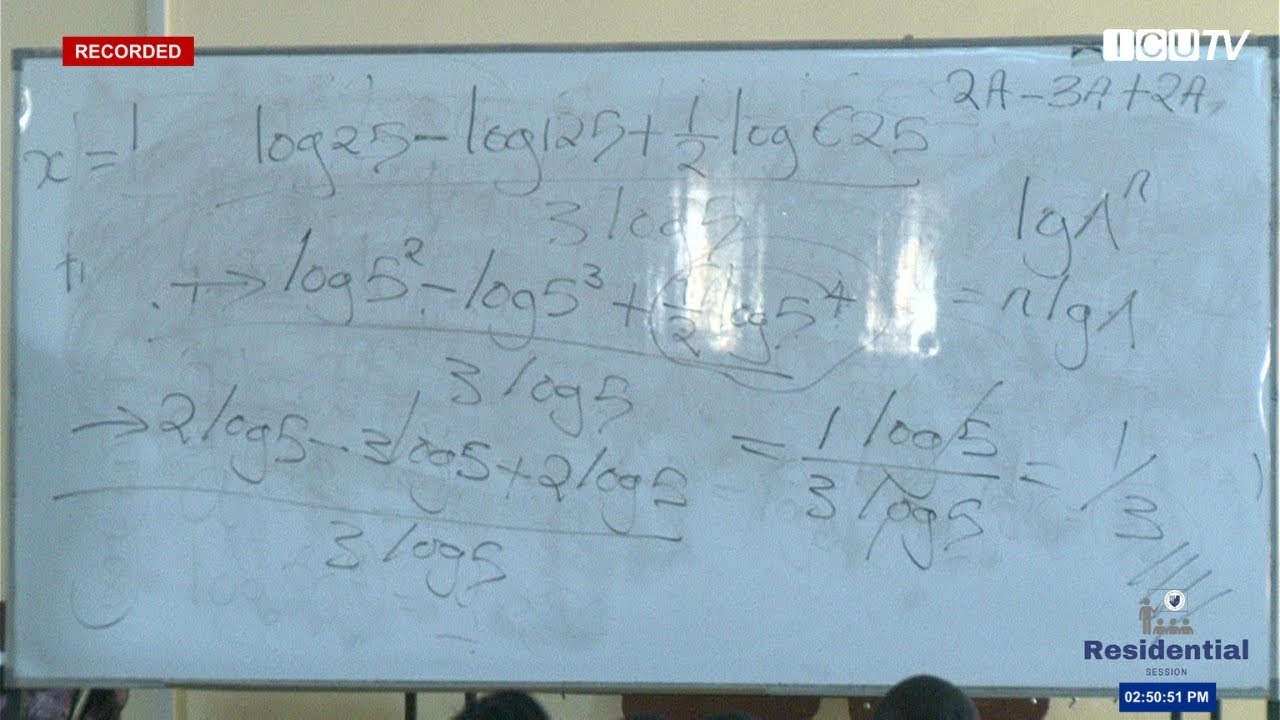 RECORDED
ICU TV
2A - 3A + 2A
x = 1
log25 - log125 + 1/2 log 625
3 log5
lg A^n
→ log5^2 - log5^3 + 1/2 log5^4
= n lg A
3 log5
→ 2log5 - 3log5 + 2log5 = 1 log5 / 3 log5 = 1/3
3 log5
Residential
SESSION
02:50:51 PM